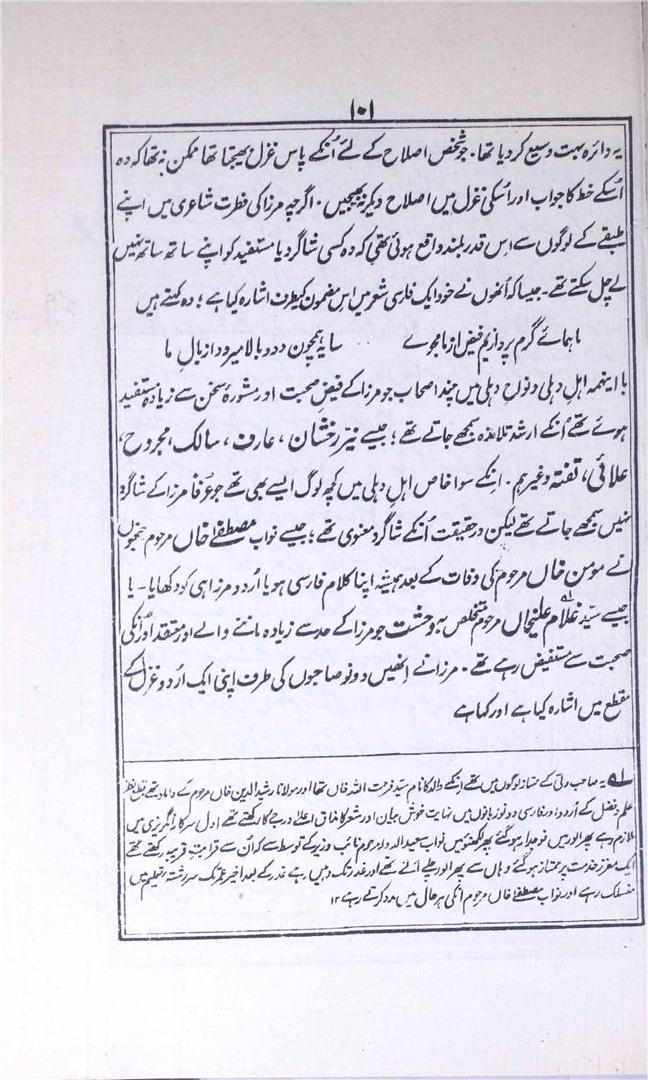 ۱۰۱
یہ دائرہ بہت وسیع کردیا تھا۔ جو شخص اصلاح کے لئے اُنکے پاس غزل بھیجتا تھا ممکن نہ تھا کہ وہ
اُسکے خط کا جواب اور اُسکی غزل میں اصلاح دیکر نہ بھیجیں۔ اگرچہ مرزا کی فطرت شاعری میں اپنے
طبقے کے لوگوں سے اِس قدر بلند واقع ہوئی تھی کہ وہ کسی شاگرد یا مستفید کو اپنے ساتھ ساتھ نہیں
لے چل سکتے تھے۔ جیسا کہ اُنھوں نے خود ایک فارسی شعر میں اِس مضمون کیطرف اشارہ کیا ہے؛ وہ کہتے ہیں
ما ہمائے گرم پروازیم فیض از ما مجوے سایہ ہمچون دود بالا میرود از بالِ ما
با اینہمہ اہلِ دہلی و نواحِ دہلی میں چند اصحاب جو مرزا کے فیضِ صحبت اور مشورۂ سخن سے زیادہ مستفید
ہوے تھے اُنکے ارشد تلامذہ سمجھے جاتے تھے؛ جیسے نیّر رخشان، عارف، سالک، مجروح،
علائی، تفتہ وغیرہم۔ انکے سوا خاص اہلِ دہلی میں کچھ لوگ ایسے بھی تھے جو عُرفاً مرزا کے شاگرد
نہیں سمجھے جاتے تھے لیکن درحقیقت اُنکے شاگرد معنوی تھے؛ جیسے نواب مصطفےٰ خاں مرحوم جنہوں
نے مومن خاں مرحوم کی وفات کے بعد ہمیشہ اپنا کلام فارسی ہو یا اُردو مرزا ہی کو دکھایا۔ یا
جیسے سیّد غلام علیخاں لہ مرحوم متخلص بہ وحشت جو مرزا کے حد سے زیادہ ماننے والے اور معتقد اور اُنکی
صحبت سے مستفیض رہے تھے۔ مرزا نے اِنھیں دونو صاحبوں کی طرف اپنی ایک اُردو غزل کے
مقطع میں اشارہ کیا ہے اور کہا ہے
لہ یہ صاحب دلّی کے ممتاز لوگوں میں تھے اِنکے والد کا نام سیّد فرحت اللہ خاں تھا اور مولانا رشید الدین خاں مرحوم کے داماد تھے قطع نظر
علم و فضل کے اُردو اور فارسی دونو زبانوں میں نہایت خوش بیان اور شعر کا مذاق اعلےٰ درجے کا رکھتے تھے اول سرکار انگریزی میں
ملازم رہے پھر الور میں فوجدار ہوگئے پھر لکھنؤ میں نواب سعید الدولہ مرحوم نائب وزیر کے توسط سے کہ اُن سے قرابتِ قریبہ رکھتے تھے
ایک معزز خدمت پر ممتاز ہوگئے وہاں سے پھر الور چلے آئے تھے اور غدر تک وہیں رہے غدر کے بعد اخیر عمر تک سررشتہ تعلیم میں
منسلک رہے اور نواب مصطفےٰ خاں مرحوم اُنکی ہر حال میں مدد کرتے رہے ۱۲